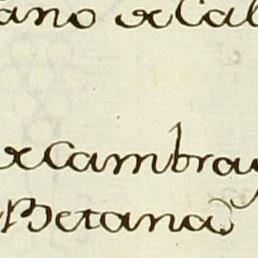 ano de Cal
de Cambray
Betana